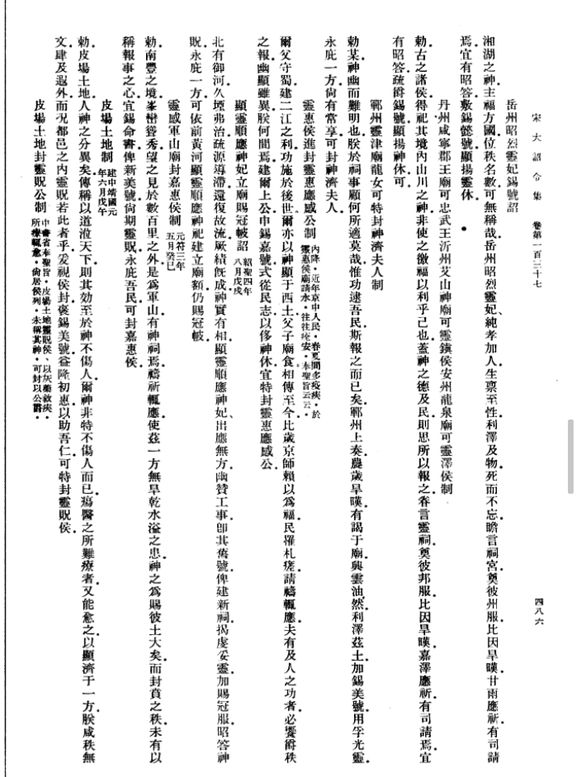 宋大詔令集　卷第一百三十七
四八六
岳州昭烈靈妃錫號詔
湘湖之神主福方國位秩名數可無稱哉岳州昭烈靈妃純孝加人生禀至性利澤及物死而不忘瞻言祠宮奠彼州服比因旱暵甘雨應祈有司請
焉宜有昭答敷錫懿號顯揚靈休
丹州咸寧郡王廟可忠武王沂州艾山神廟可靈鎮侯安州龍泉廟可靈澤侯制
勅古之諸侯得祀其境內山川之神非使之徼福以利乎己也蓋神之德及民則思所以報之眷言靈祠奠彼邦服比因旱暵嘉澤應祈有司請焉宜
有昭答疏爵錫號顯揚神休可
鄆州靈津廟龍女可特封神濟夫人制
勅某神幽而難明也朕於祠事顧何所適莫哉惟功逮吾民斯報之而已矣鄆州上奏農歲旱暵有謁于廟興雲油然利澤茲土加錫美號用孚光靈
永庇一方尙有常享可封神濟夫人
靈惠侯進封靈惠應感公制　內降近年京中人民春夏間多疫疾於靈惠侯廟請水往往痊安奉聖旨云云
爾父守蜀建二江之利功施於後世爾亦以神顯于西土父子廟食相傳至今比歲京師賴以爲福民罹札瘥請禱輒應夫有及人之功者必饗爵秩
之報幽顯雖異朕何間焉建爾上公申錫嘉號式從民志以侈神休宜特封靈惠應感公
顯靈順應神妃立廟賜冠帔詔　紹聖四年八月戊戌
北有御河久堙弗治疏源導滯還復故流厥績旣成神實有相顯靈順應神妃出應無方幽贊工事卽其舊號俾建新祠揭虔妥靈加賜冠服昭答神
貺永庇一方可依前黃河顯靈順應神祀建立廟額仍賜冠帔
靈感軍山廟封嘉惠侯制　元符三年五月癸巳
勅南豐之境峯巒聳秀望之見於數百里之外是爲軍山有神祠焉禱祈輒應使茲一方無旱乾水溢之患神之爲賜彼土大矣而封賁之秩未有以
稱報事之心宜錫命書俾新美號尙期靈貺永庇吾民可封嘉惠侯
皮場土地制　建中靖國元年六月戊午
勅皮場土地人神之分異矣傳稱以道涖天下則其效至於神不傷人爾神非特不傷人而已瘍醫之所難療者又能愈之以顯濟于一方朕咸秩無
文肆及遐外而況都邑之內靈貺若此者乎爰視侯封褒錫美號益隆初惠以助吾仁可特封靈貺侯
皮場土地封靈貺公制　中書省奉聖旨皮場土地靈貺侯以灰藥救疾所療輒愈尙居侯列未稱其神可封以公爵